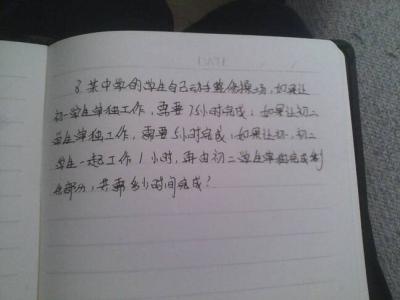 8.某中学的学生自己动手整修操场,如果让
初一学生单独工作,需要7.5小时完成;如果让初二
学生单独工作,需要5小时完成;如果让初一、初二
学生一起工作1小时,再由初二学生单独完成剩
余部分,共需多少时间完成?